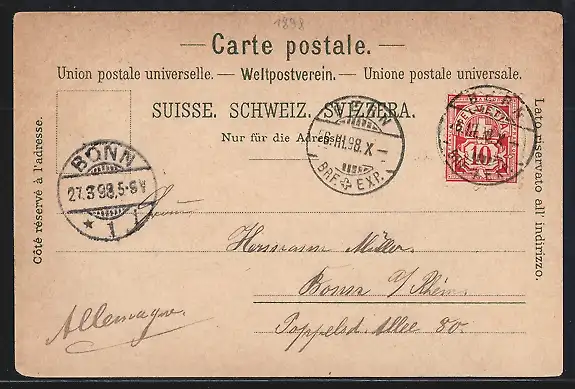 1898
Carte postale.
Union postale universelle. — Weltpostverein. — Unione postale universale.
SUISSE. SCHWEIZ. SVIZZERA.
Nur für die Adresse.
Côté réservé à l'adresse.
Lato riservato all' indirizzo.
BONN
27.3.98.5-6V
* 1
BERN
26.III.98.X
BRF. EXP.
HELVETIA
10
Herrn
Hermann Müller.
Bonn a/Rhein.
Poppelsd. Allee 80.
Allemagne.